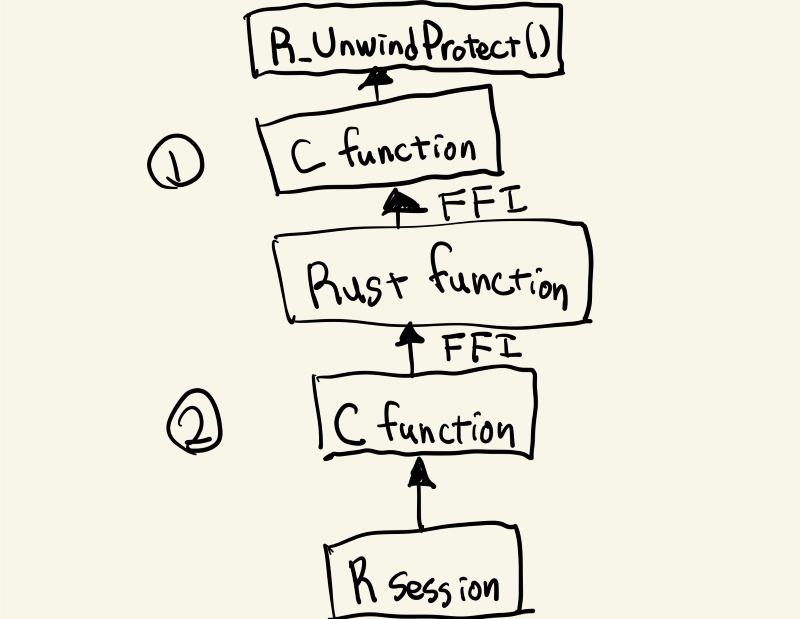 R_UnwindProtect()
①
C function
FFI
Rust function
FFI
②
C function
R session